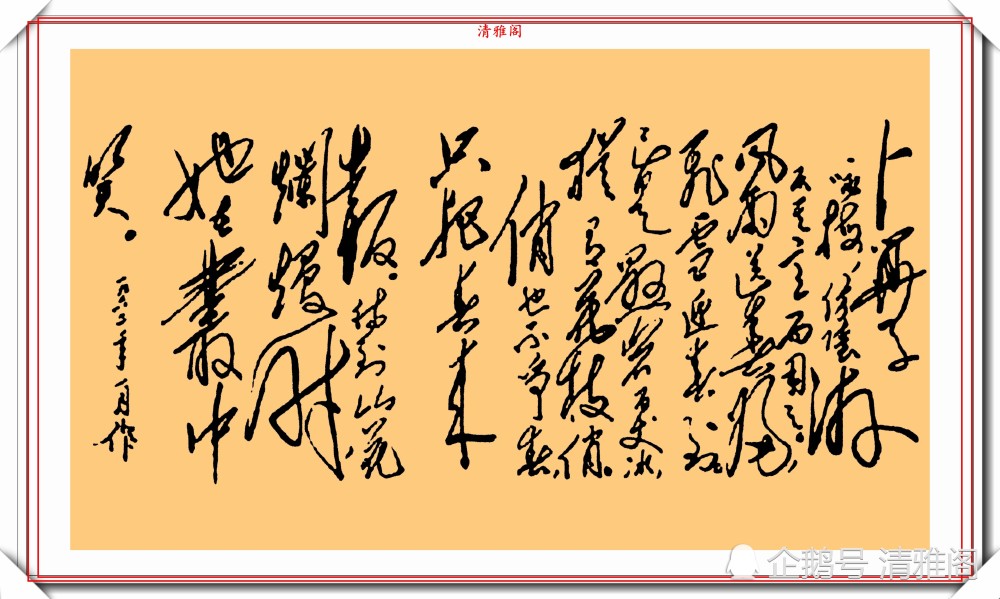 清雅阁
卜算子
咏梅，依陸游
反其意而用之。
风雨送春归，
飛雪迎春到
已是懸岩百丈冰，
猶有花枝俏。
俏也不爭春，
只把春来
報。待到山花
爛熳時
她在叢中
笑。
一九六二年一月作
企鹅号 清雅阁